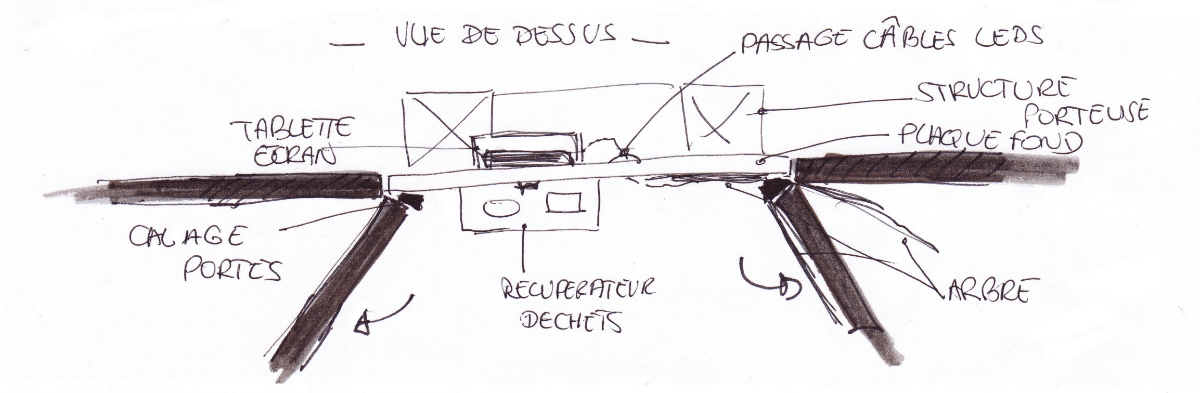 — VUE DE DESSUS —
PASSAGE CÂBLES LEDS
STRUCTURE
PORTEUSE
PLAQUE FOND
TABLETTE
ECRAN
CALAGE
PORTES
RECUPERATEUR
DECHETS
ARBRE